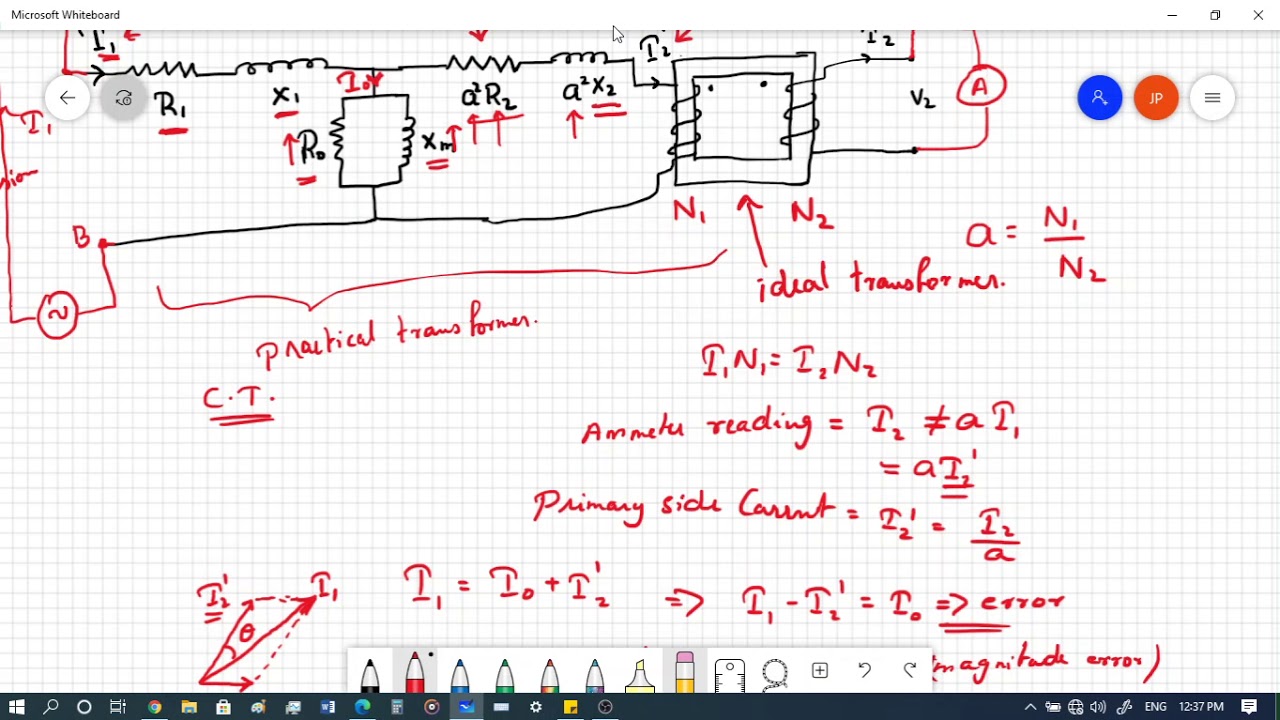 Microsoft Whiteboard
I₁
I₂'
I₂
R₁
X₁
I₀
a²R₂
a²X₂
V₂
A
JP
I₁
R₀
Xm
N₁
N₂
B
a = N₁/N₂
ideal transformer.
Practical transformer.
I₁N₁ = I₂N₂
C.T.
Ammeter reading = I₂ ≠ aI₁
= aI₂'
Primary side Current = I₂' = I₂/a
I₂'
I₁
θ
I₁ = I₀ + I₂' => I₁ - I₂' = I₀ => error
(magnitude error)
ENG
12:37 PM